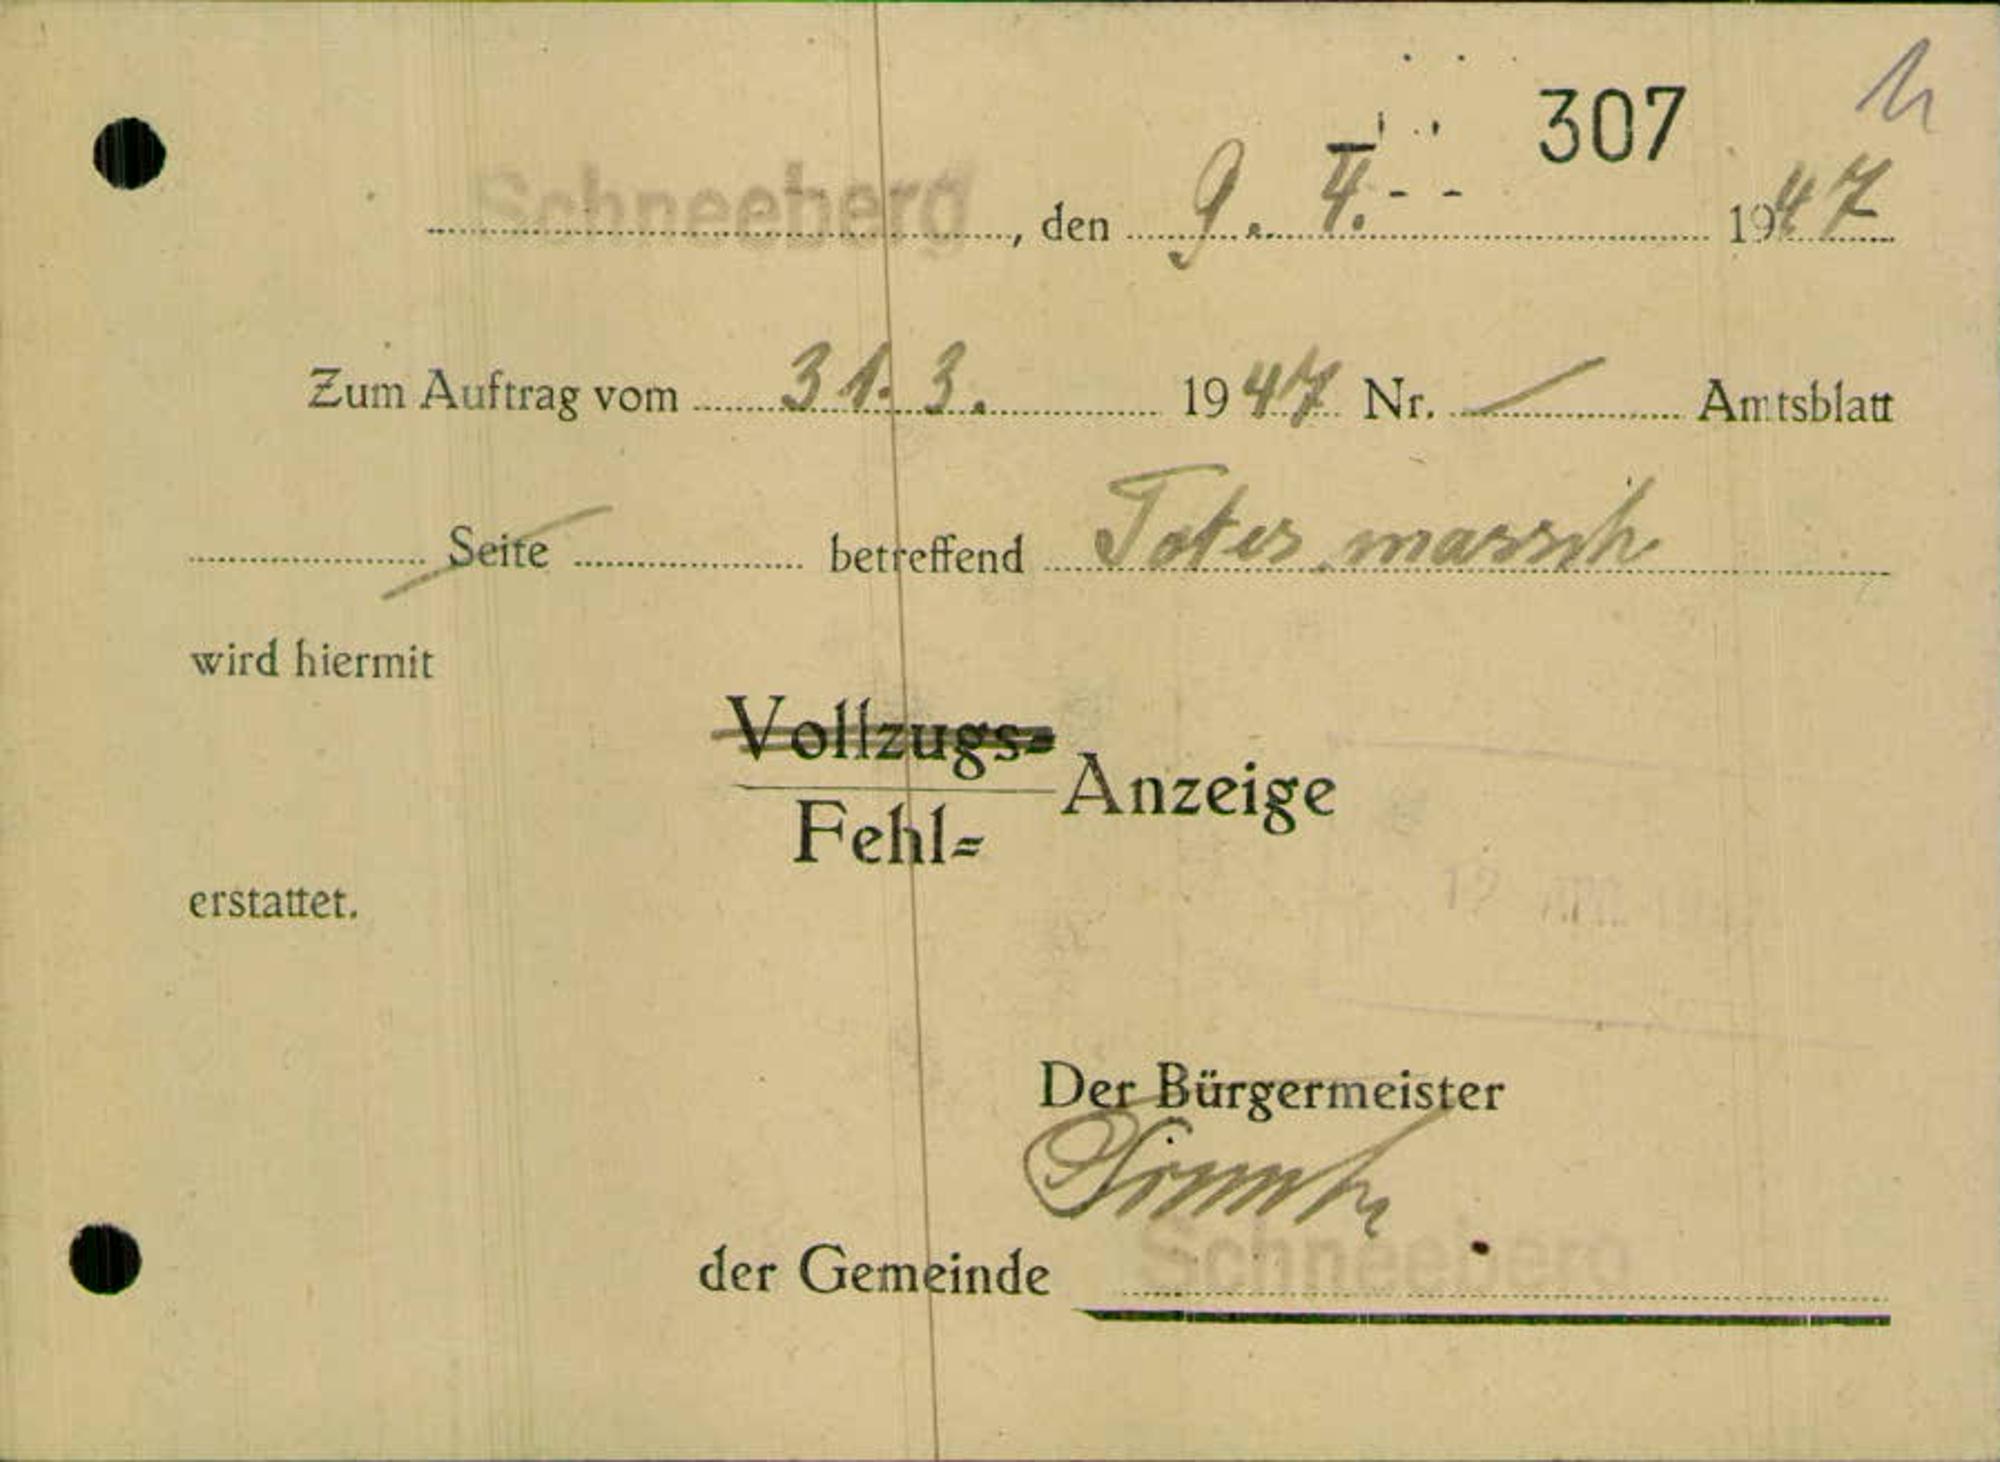 307
Schneeberg, den 9. 4. 1947
Zum Auftrag vom 31. 3. 1947 Nr. Amtsblatt
Seite betreffend
wird hiermit
Vollzugs=
Anzeige
Fehl=
erstattet.
Der Bürgermeister
der Gemeinde Schneeberg